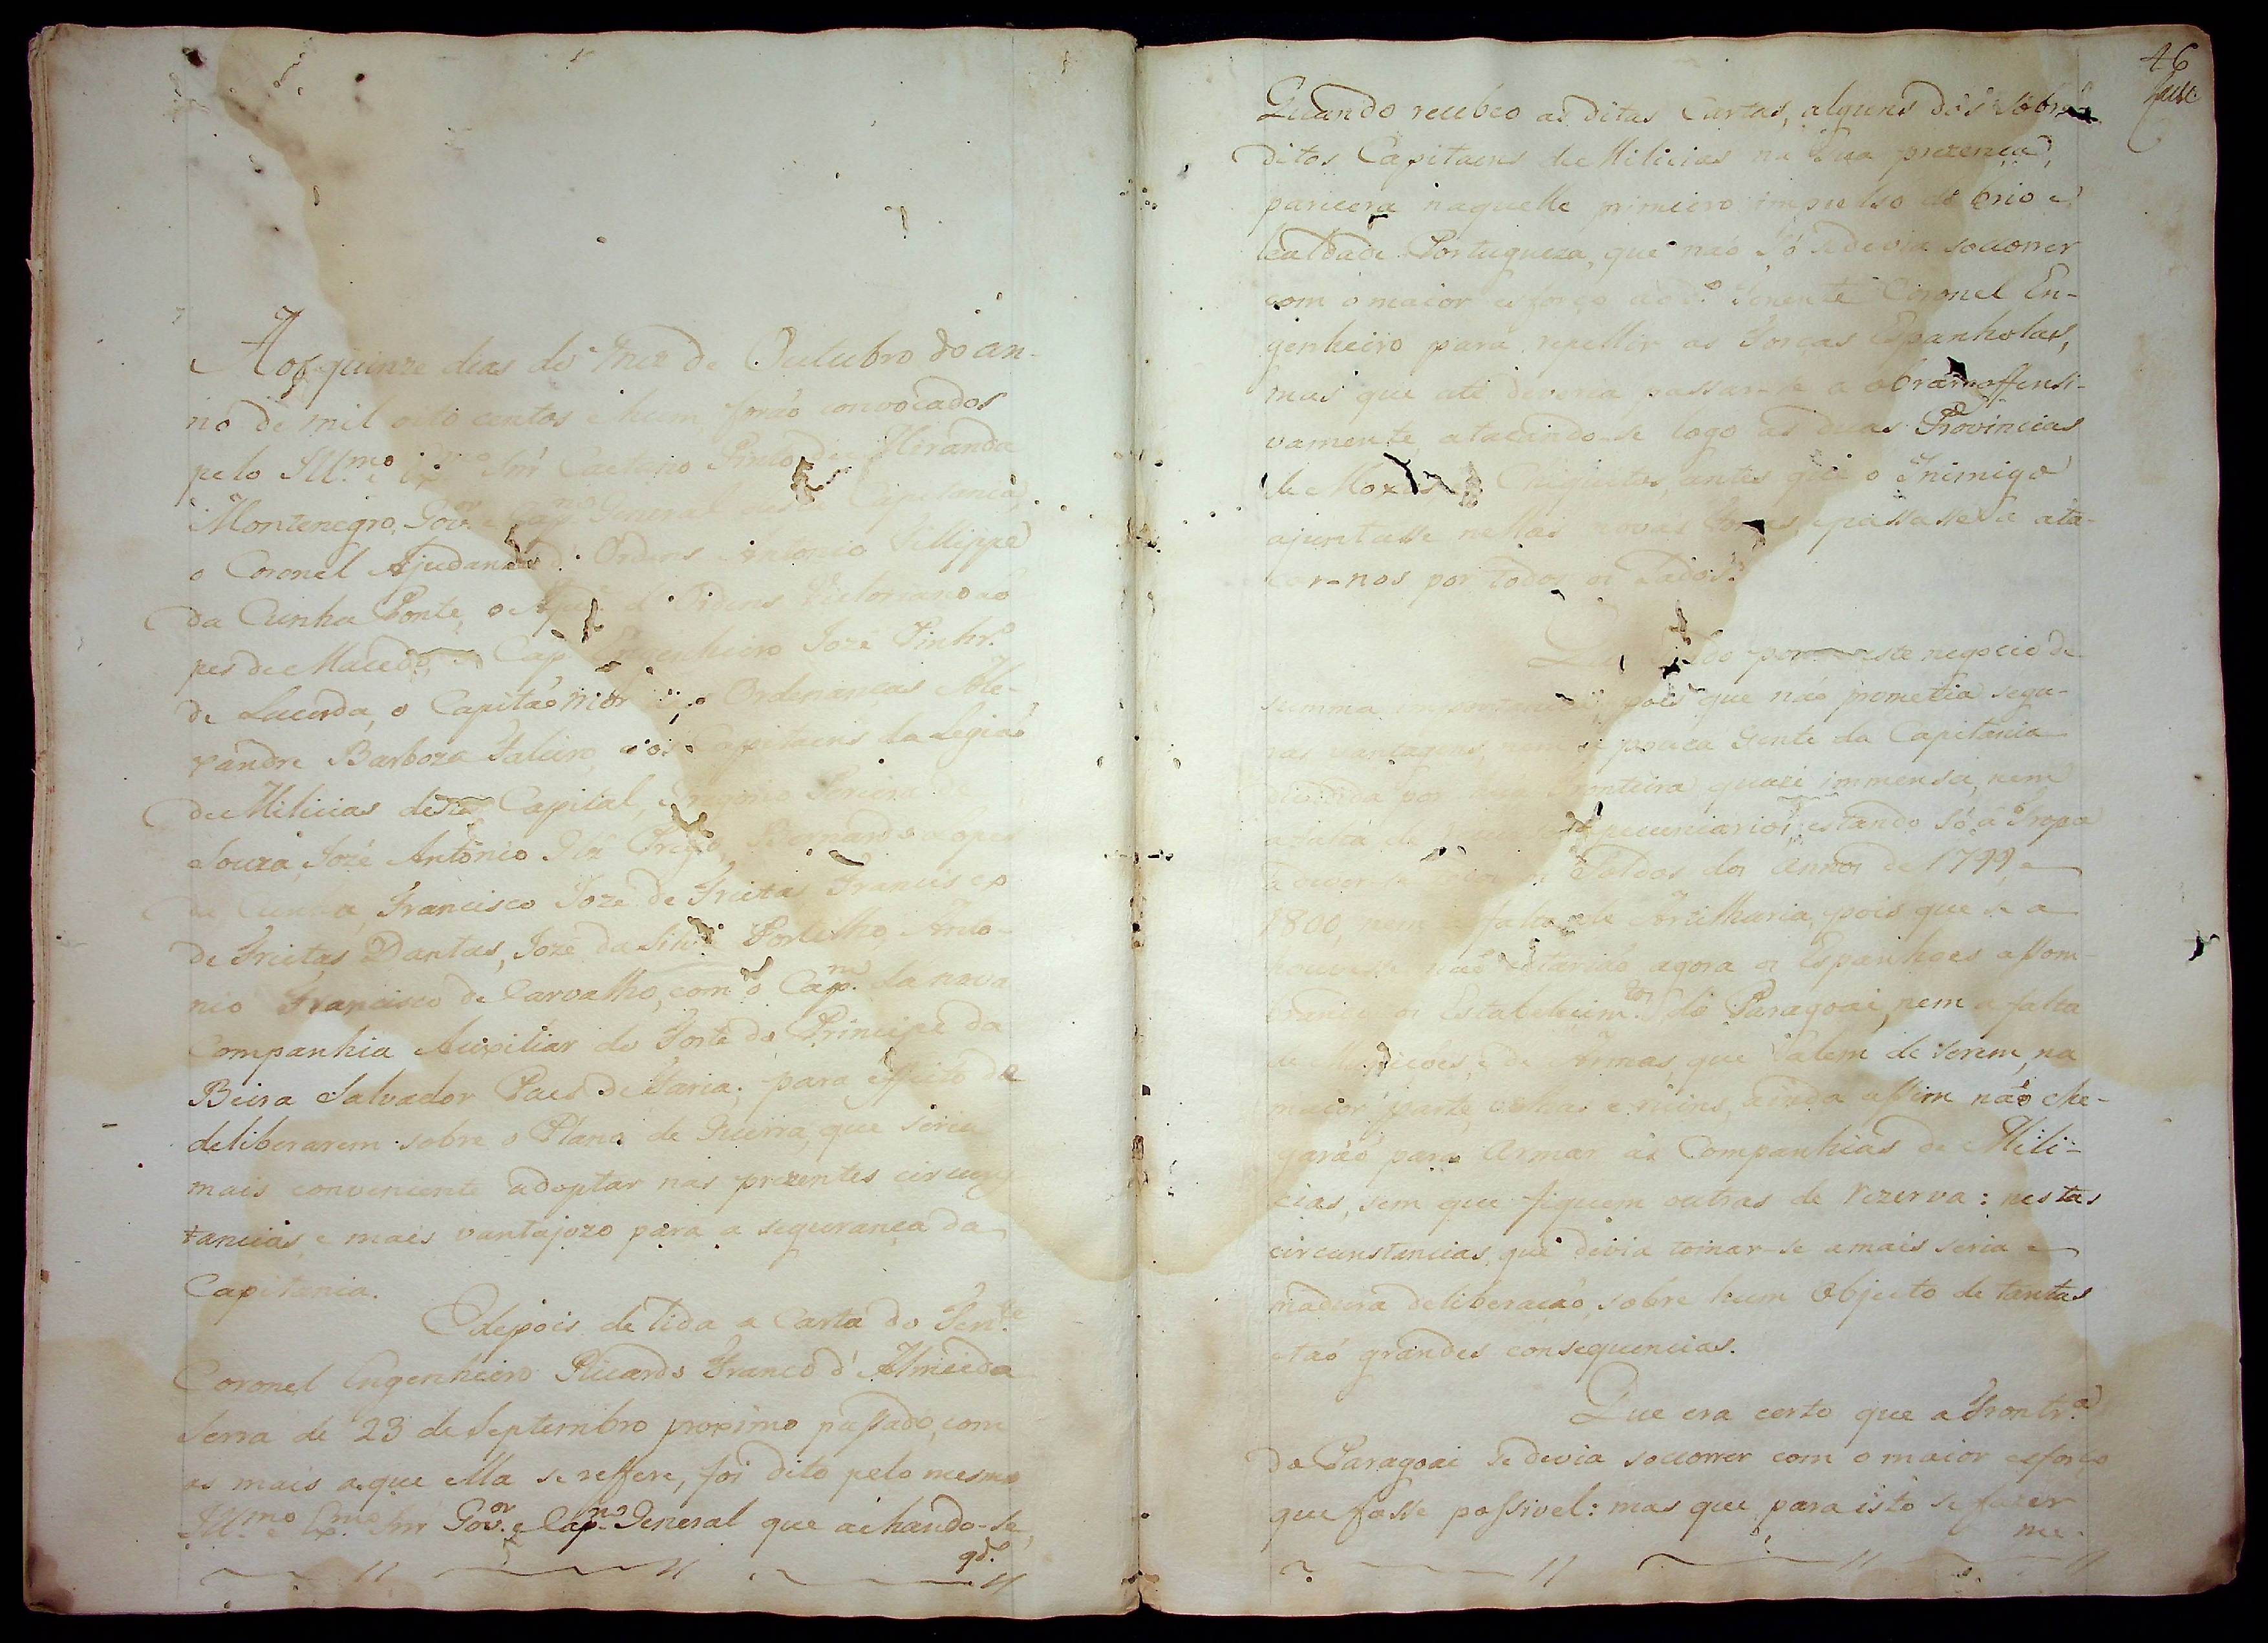 Aos quinze dias do Mez de Outubro do an-
no de mil oito centos e hum forão convocados
pelo Ill.mo e Ex.mo Snr Caetano Pinto de Miranda
Montenegro, Gov.or e Cap.m General desta Capitania,
o Coronel Ajudante d' Ordens Antonio Fillippe
da Cunha Ponte, o Aju.e d' Ordens Victoriano Lo
pes de Macedo, o Cap. Engenheiro Joze Pinhr.o
de Lacerda, o Capitão mór das Ordenanças Ale-
xandre Barboza Faleiro, e os Capitaens da Legião
de Milicias desta Capital, Gregorio Pereira de
Souza, Jozé Antonio Prego, Bernardo Lopes
da Cunha, Francisco Joze de Freitas, Francisco
de Freitas Dantas, Joze da Silva Portilho, Anto-
nio Francisco de Carvalho, com o Cap.m da nova
Companhia Auxiliar do Forte do Principe da
Beira Salvador Paes de Faria; para effeito de
deliberarem sobre o Plano de Guerra, que seria
mais conveniente adoptar nas prezentes circuns
tancias, e mais vantajozo para a segurança da
Capitania.
E depois de lida a Carta do Ten.te
Coronel Engenheiro Ricardo Franco d' Almeida
Serra de 23 de Septembro proximo passado, com
as mais aque ella se reffere, foi dito pelo mesmo
Ill.mo e Ex.mo Snr Gov.or e Cap.m General que achando-se,
qd.o
46
Quando recebeo as ditas Cartas, alguns dos Sobre
ditos Capitaens de Milicias na Sua prezença,
parecera naquelle primeiro impulso de brio e
lealdade Portugueza, que não só se devia soccorrer
com o maior esforço ao d.o Tenente Coronel En-
genheiro para repellir as Forças Espanholas,
mas que até deveria passar-se a obrar offensi-
vamente, atacando-se logo as duas Provincias
de Moxos e Chiquitos, antes que o Inimigo
ajuntasse nellas novas Forças, e passasse a ata-
car-nos por todos os Lados.
porem este negocio de
summa importancia, pois que não prometia segu-
ras vantagens, nem a pouca Gente da Capitania
dividida por hua Fronteira quazi immensa, nem
a falta de recursos pecuniarios, estando só a Tropa
a dever-se os Soldos dos Annos de 1799, e
1800, nem a falta de Artilharia, pois que se a
houvesse não estarião agora os Espanhoes assom-
brando os Estabelecim.tos do Paragoai, nem a falta
de Muniçoes, e de Armas, que alem de serem, na
maior parte, velhas e ruins, ainda assim não che-
garáo para armar as Companhias de Mili-
cias, sem que fiquem outras de rezerva: nestas
circunstancias, que devia tomar-se a mais seria e
madura deliberação, sobre hum Objecto de tantas
e taó grandes consequencias.
Que era certo que a Frontr.a
do Paragoai se devia soccorrer com o maior esforço
que fosse possivel: mas que para isto se fazer
me-